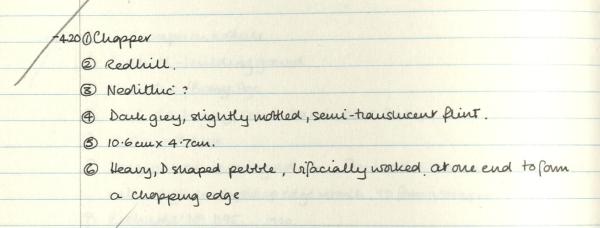 -420 ① Chopper
② Redhill.
③ Neolithic?
④ Dark grey, slightly mottled, semi-translucent flint.
⑤ 10.6cm x 4.7cm.
⑥ Heavy, D shaped pebble, bifacially worked at one end to form
a chopping edge